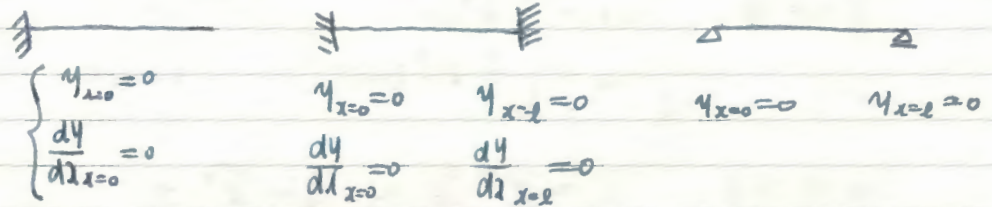 y_{x=0} = 0
dy/dx_{x=0} = 0
y_{x=0} = 0 y_{x=l} = 0
dy/dx_{x=0} = 0 dy/dx_{x=l} = 0
y_{x=0} = 0 y_{x=l} = 0